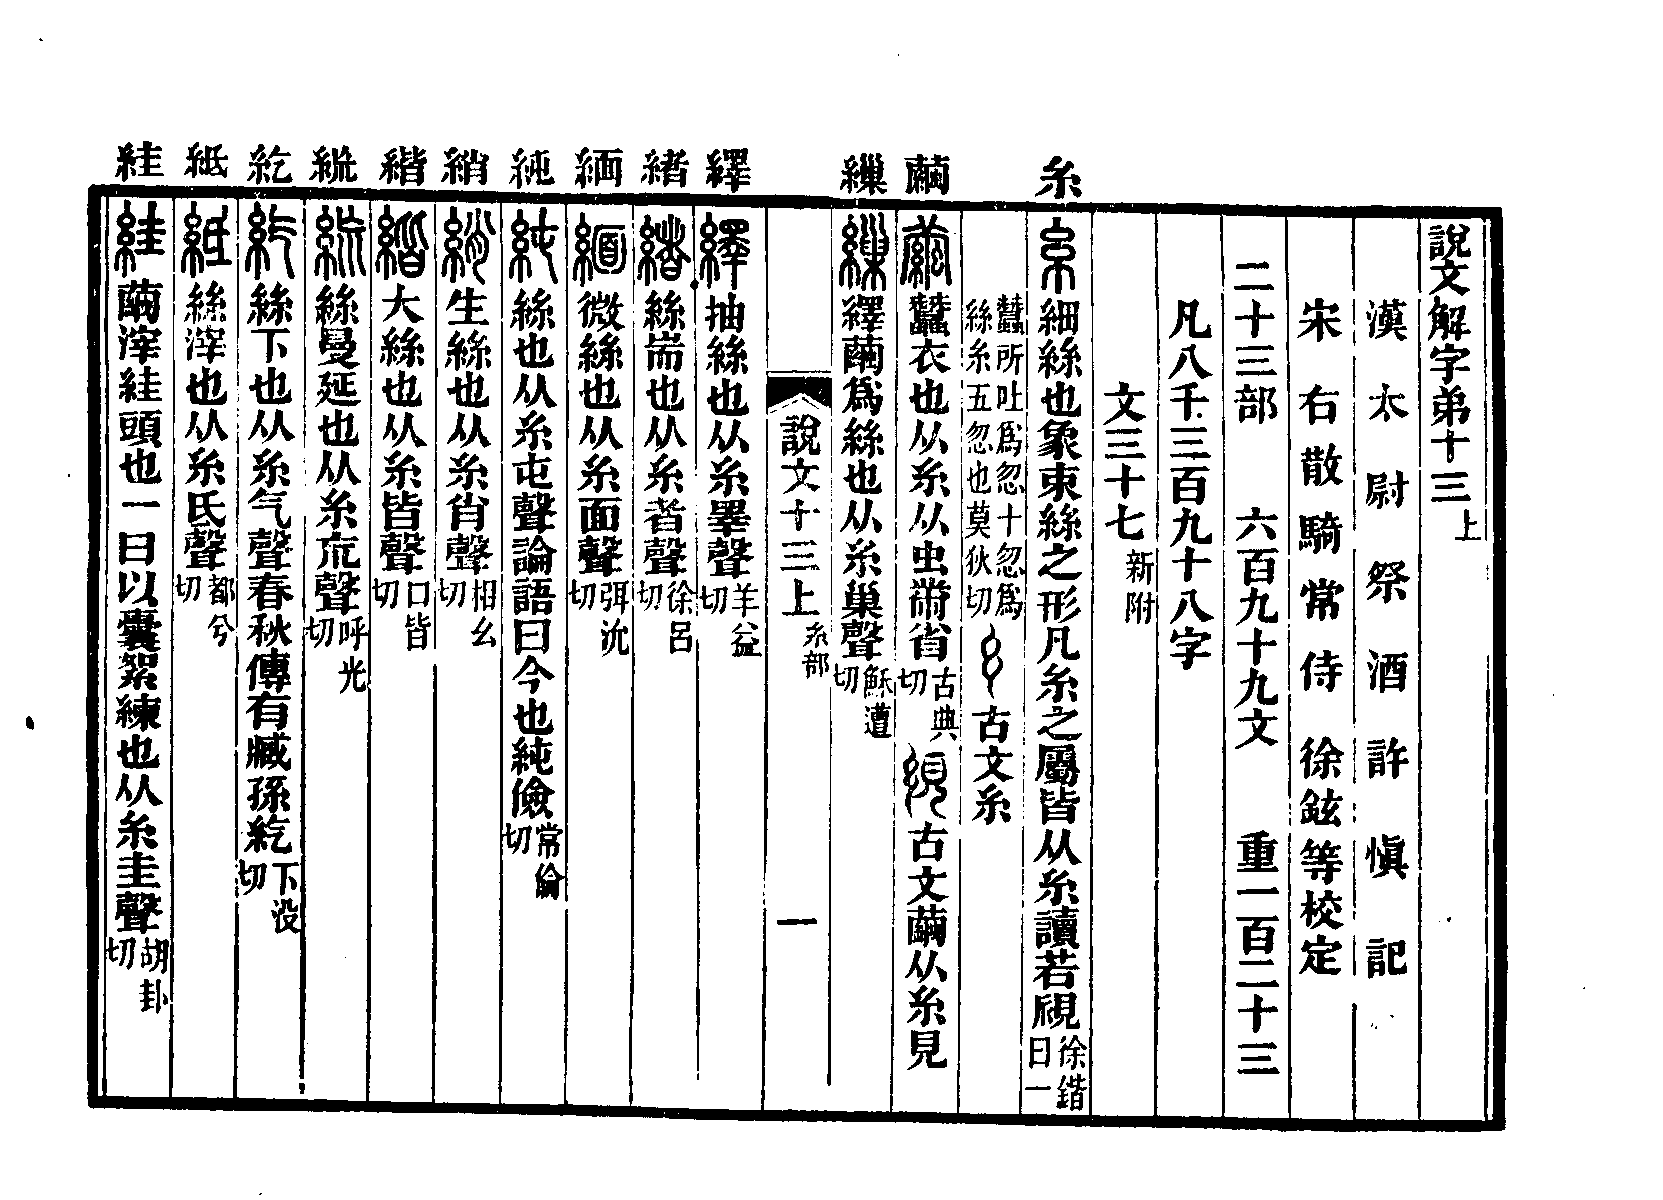 說文解字弟十三上
漢太尉祭酒許愼記
宋右散騎常侍徐鉉等校定
二十三部 六百九十九文 重一百二十三
凡八千三百九十八字
文三十七新附
糸
糸 細絲也象束絲之形凡糸之屬皆从糸讀若覛徐鍇曰一
蠶所吐爲忽十忽爲絲糸五忽也莫狄切 古文糸
繭
繭 蠶衣也从糸从虫黹省古典切 古文繭从糸見
繅
繅 繹繭爲絲也从糸巢聲穌遭切
說文十三上 糸部 一
繹
繹 抽絲也从糸睪聲羊益切
緒
緒 絲耑也从糸者聲徐呂切
緬
緬 微絲也从糸面聲弭沇切
純
純 絲也从糸屯聲論語曰今也純儉常倫切
綃
綃 生絲也从糸肖聲相幺切
緒
緒 大絲也从糸皆聲口皆切
絖
絖 絲曼延也从糸巟聲呼光切
紇
紇 絲下也从糸气聲春秋傳有臧孫紇下没切
紙
紙 絲滓也从糸氏聲都兮切
絓
絓 繭滓絓頭也一曰以囊絮練也从糸圭聲胡卦切